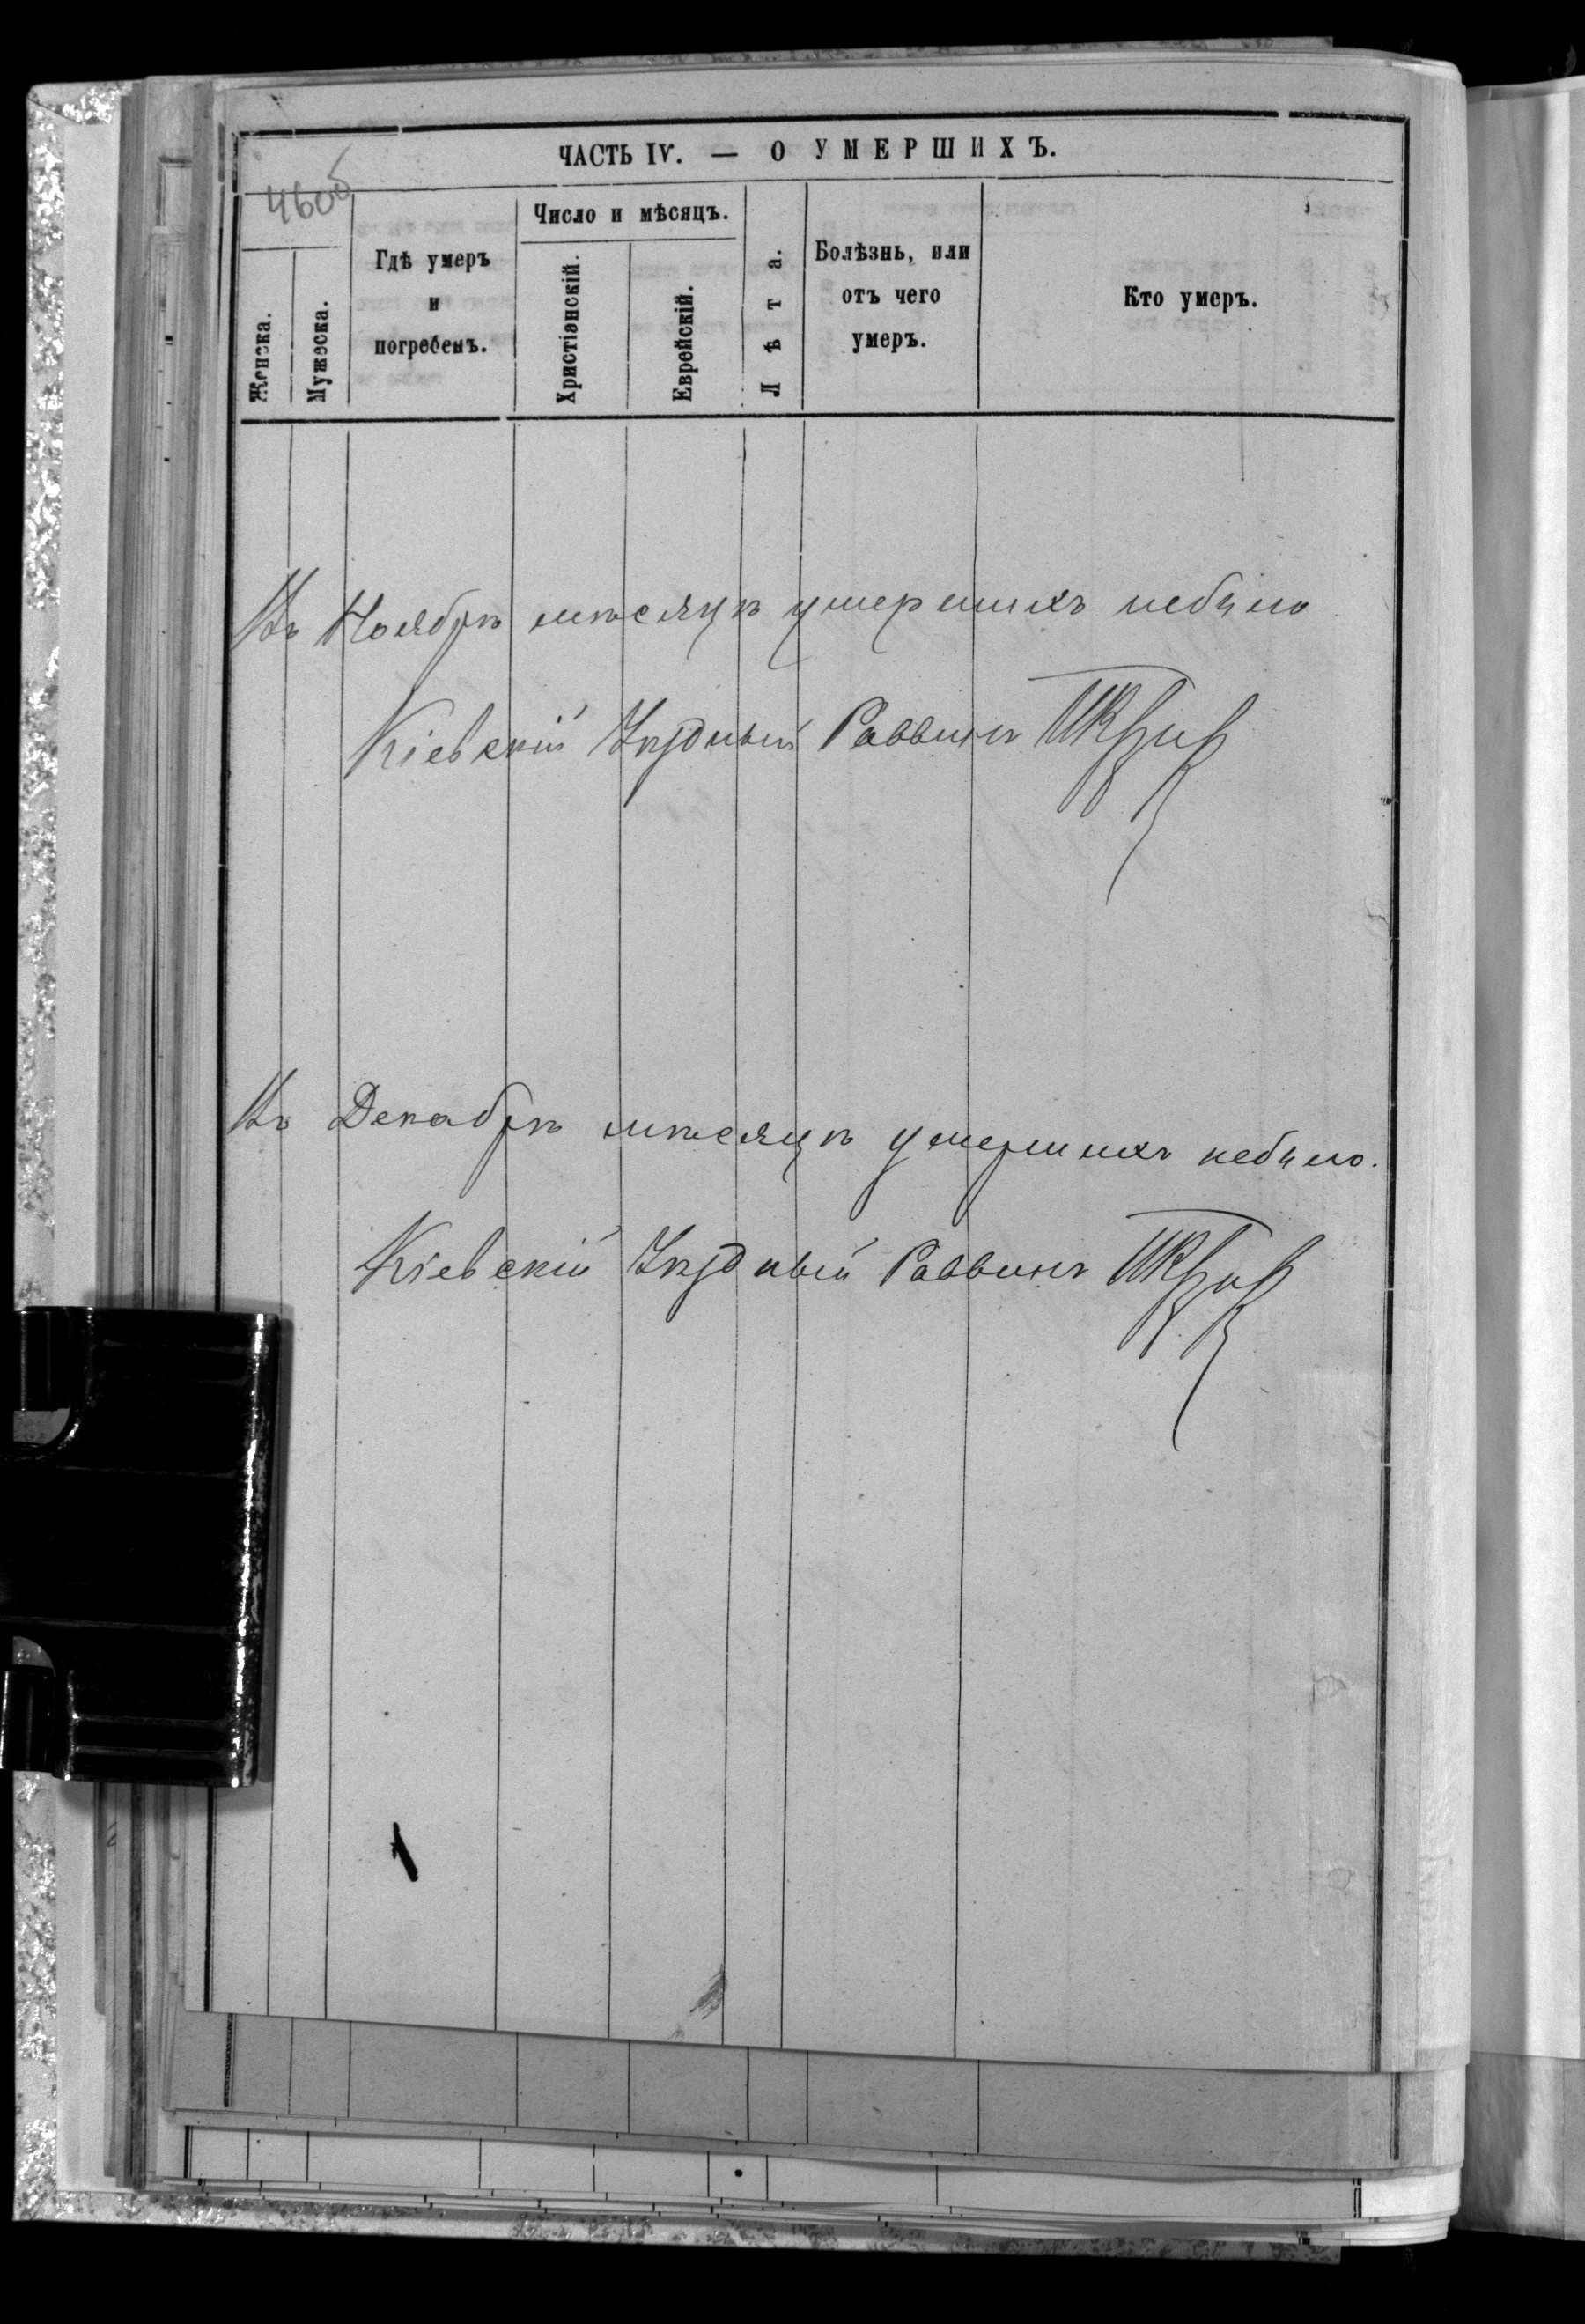 ЧАСТЬ IV. — О УМЕРШИХЪ.
460об
Женска.
Мужеска.
Гдѣ умеръ
и
погребенъ.
Число и мѣсяцъ.
Христіанскій.
Еврейскій.
Лѣта.
Болѣзнь, или
отъ чего
умеръ.
Кто умеръ.
Въ Ноябрѣ мѣсяцѣ умершихъ небыло
Кіевскій Уѣздный Раввинъ
Въ Декабрѣ мѣсяцѣ умершихъ небыло.
Кіевскій Уѣздный Раввинъ